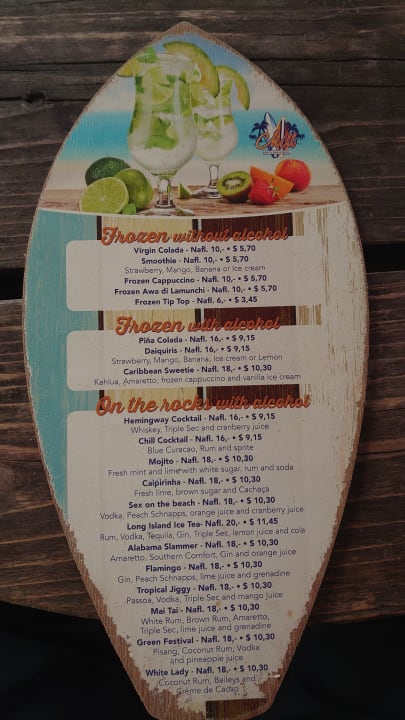 Chill
Frozen without alcohol
Virgin Colada - Nafl. 10,- • $ 5,70
Smoothie - Nafl. 10,- • $ 5,70
Strawberry, Mango, Banana or Ice cream
Frozen Cappuccino - Nafl. 10,- • $ 5,70
Frozen Awa di Lamunchi - Nafl. 10,- • $ 5,70
Frozen Tip Top - Nafl. 6,- • $ 3,45
Frozen with alcohol
Piña Colada - Nafl. 16,- • $ 9,15
Daiquiris - Nafl. 16,- • $ 9,15
Strawberry, Mango, Banana, Ice cream or Lemon
Caribbean Sweetie - Nafl. 18,- • $ 10,30
Kahlua, Amaretto, frozen cappuccino and vanilla ice cream
On the rocks with alcohol
Hemingway Cocktail - Nafl. 16,- • $ 9,15
Whiskey, Triple Sec and cranberry juice
Chill Cocktail - Nafl. 16,- • $ 9,15
Blue Curacao, Rum and sprite
Mojito - Nafl. 18,- • $ 10,30
Fresh mint and lime with white sugar, rum and soda
Caipirinha - Nafl. 18,- • $ 10,30
Fresh lime, brown sugar and Cachaça
Sex on the beach - Nafl. 18,- • $ 10,30
Vodka, Peach Schnapps, orange juice and cranberry juice
Long Island Ice Tea- Nafl. 20,- • $ 11,45
Rum, Vodka, Tequila, Gin, Triple Sec, lemon juice and cola
Alabama Slammer - Nafl. 18,- • $ 10,30
Amaretto, Southern Comfort, Gin and orange juice
Flamingo - Nafl. 18,- • $ 10,30
Gin, Peach Schnapps, lime juice and grenadine
Tropical Jiggy - Nafl. 18,- • $ 10,30
Passoa, Vodka, Triple Sec and mango juice
Mai Tai - Nafl. 18,- • $ 10,30
White Rum, Brown Rum, Amaretto,
Triple Sec, lime juice and grenadine
Green Festival - Nafl. 18,- • $ 10,30
Pisang, Coconut Rum, Vodka
and pineapple juice
White Lady - Nafl. 18,- • $ 10,30
Coconut Rum, Baileys and
Crème de Cacao